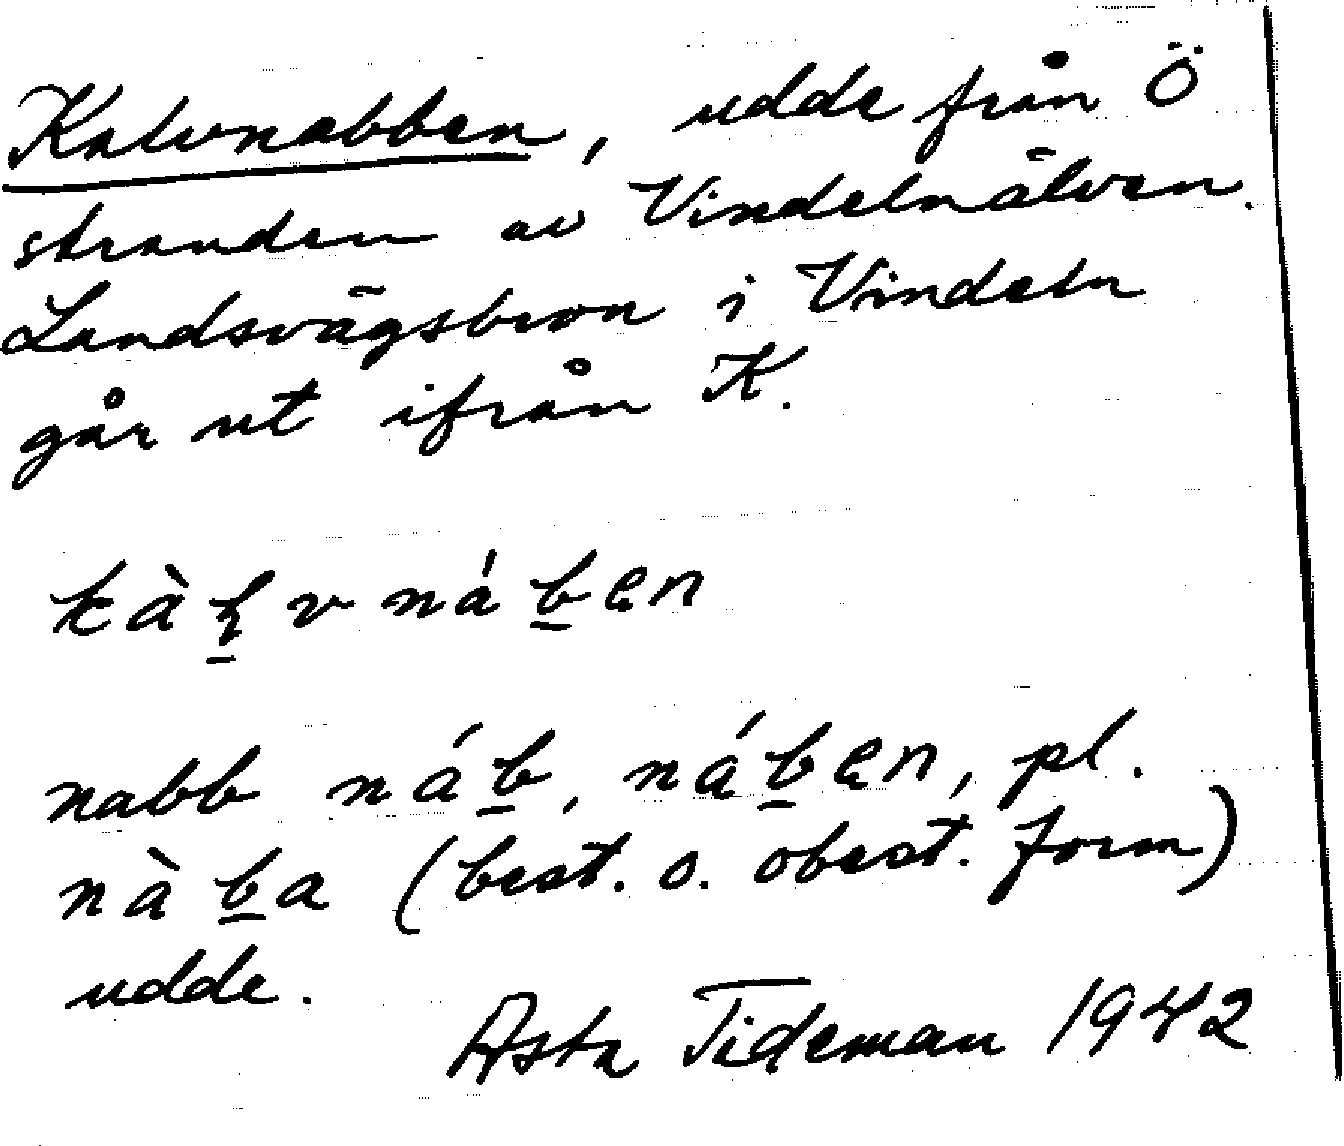 Kalvnabben, udde från Ö
stranden av Vindelnälven.
Landsvägsbron i Vindeln
går ut ifrån K.
kàl̲vnáb̲en
nabb náb̲, náb̲en, pl.
nàb̲a (best. o. obest. form)
udde.
Asta Tideman 1942